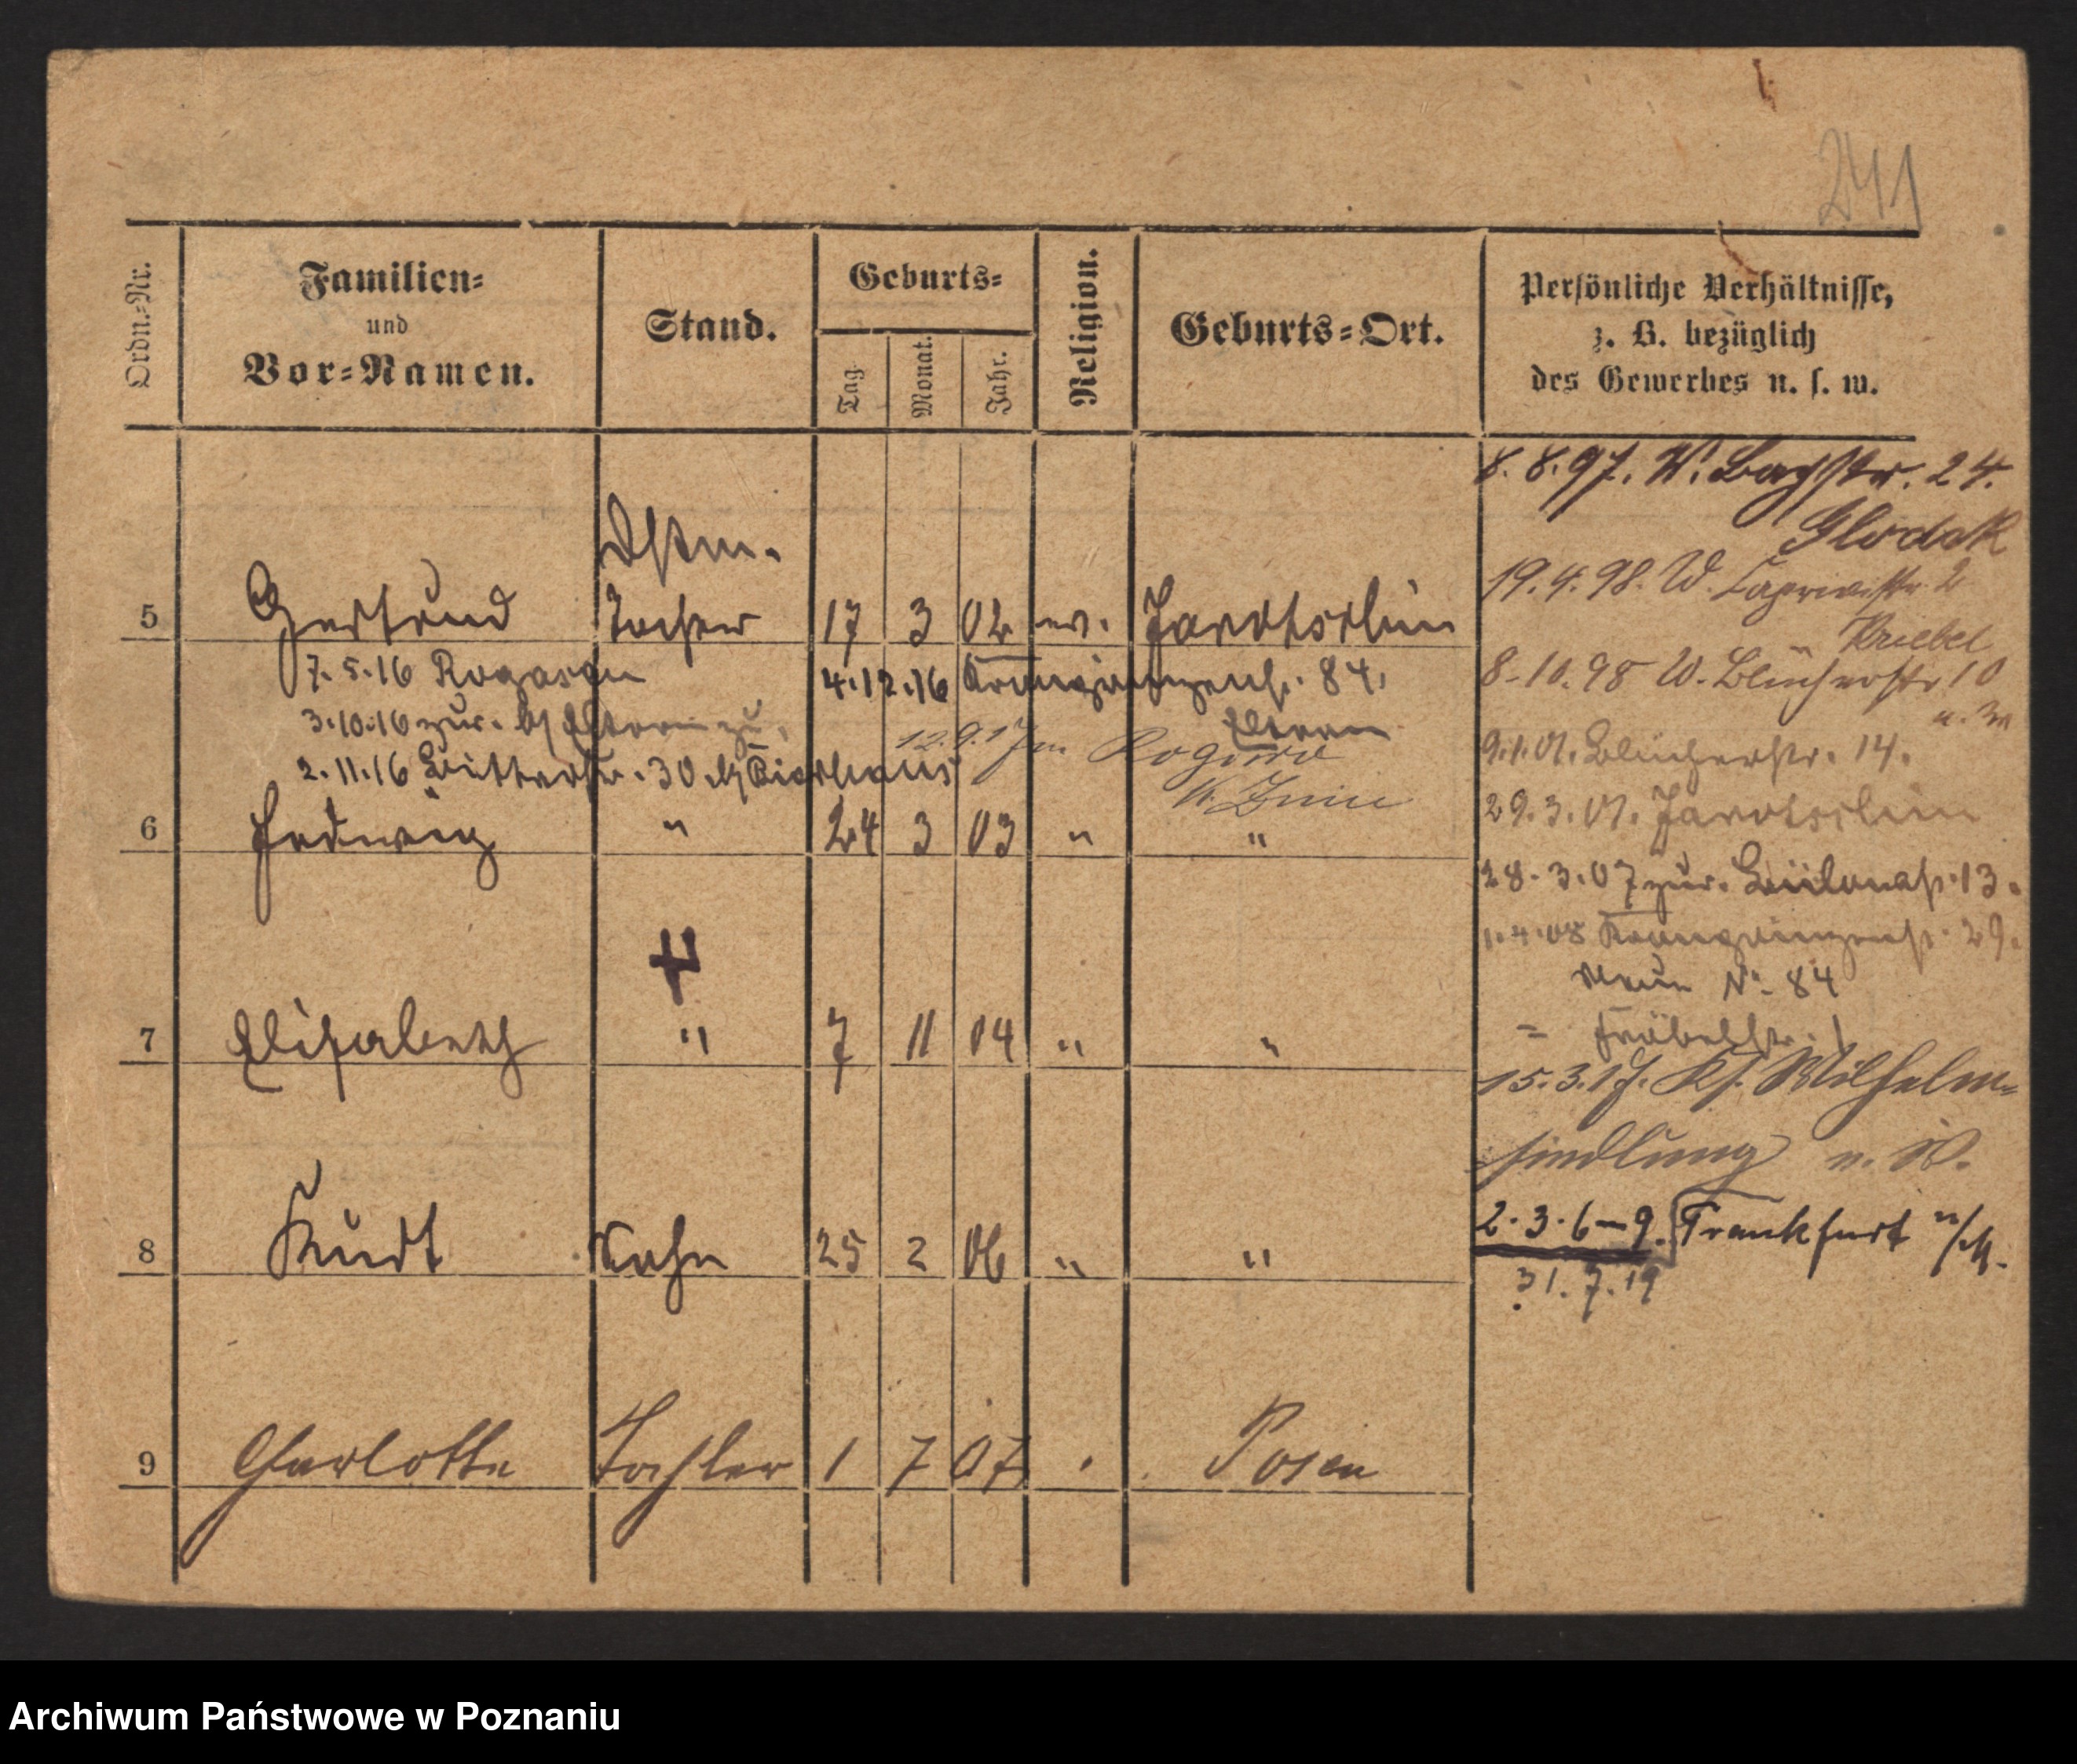 241
Ordn.-Nr.
Familien-
und
Vor-Namen.
Stand.
Geburts-
Tag.
Monat.
Jahr.
Religion.
Geburts-Ort.
Persönliche Verhältnisse,
z. B. bezüglich
des Gewerbes u. s. w.
8. 8. 97. W. 24.
Glodek
19. 4. 98. W. Caprivistr. 2
Kriebel
8. 10. 98 W. Blücherstr 10
9. 1. 01. Blücherstr. 14.
29. 3. 01. Jarotschin
28. 3. 07 zur. 13.
1. 4. 08 Kronprinzenst. 29.
neue No. 84
= Fröbelstr. 1
15. 3. 17. Wilhelm-
siedlung
2. 3. 6–9. Frankfurt a/M.
31. 7. 19
5 Gertrud Tochter 17 3 02 ev. Jarotschin
7. 5. 16 Rogasen 4. 12. 16 Kronprinzenst. 84.
Eltern
3. 10. 16 zur. b/ Eltern zu.
12. 9. 17 n. Rogowo
2. 11. 16 30 b/
K. Znin
6 Hedwig " 24 3 03 " "
7 Elisabeth " 7 11 04 " "
8 Kurt Sohn 25 2 06 " "
9 Charlotte Tochter 1 7 07 Posen
Archiwum Państwowe w Poznaniu